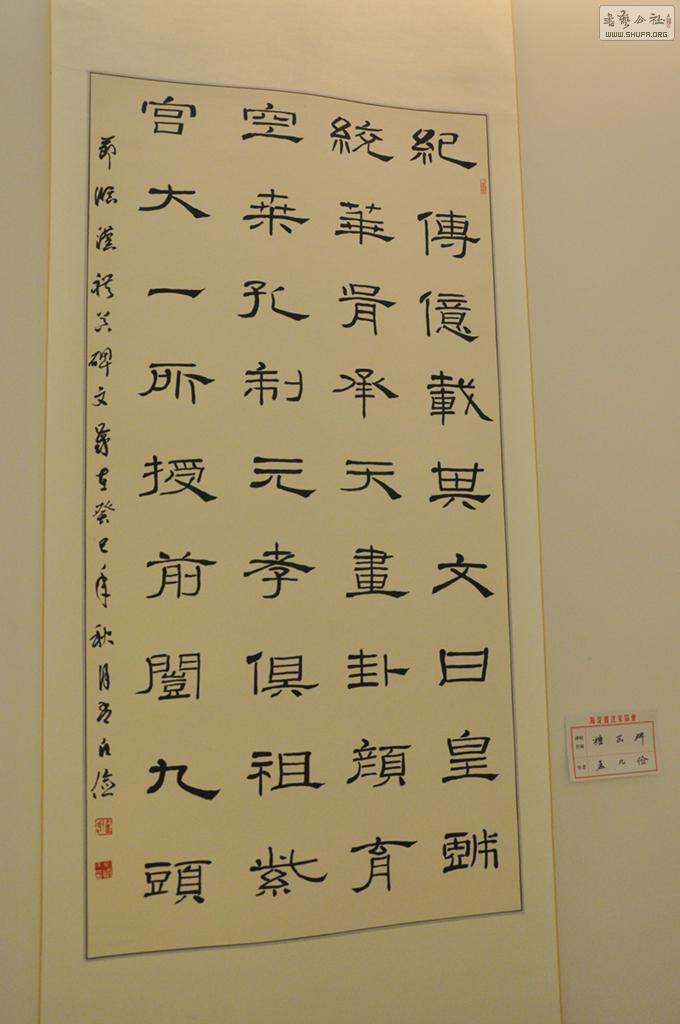 紀傳億載其文曰皇戲
統華胥承天畫卦顏育
空桒孔制元孝俱祖紫
宮大一所授前闓九頭
節臨漢禮器碑文歲在癸巳年秋月
書藝公社
WWW.SHUFA.ORG
海淀書法家協會
禮器碑
作者